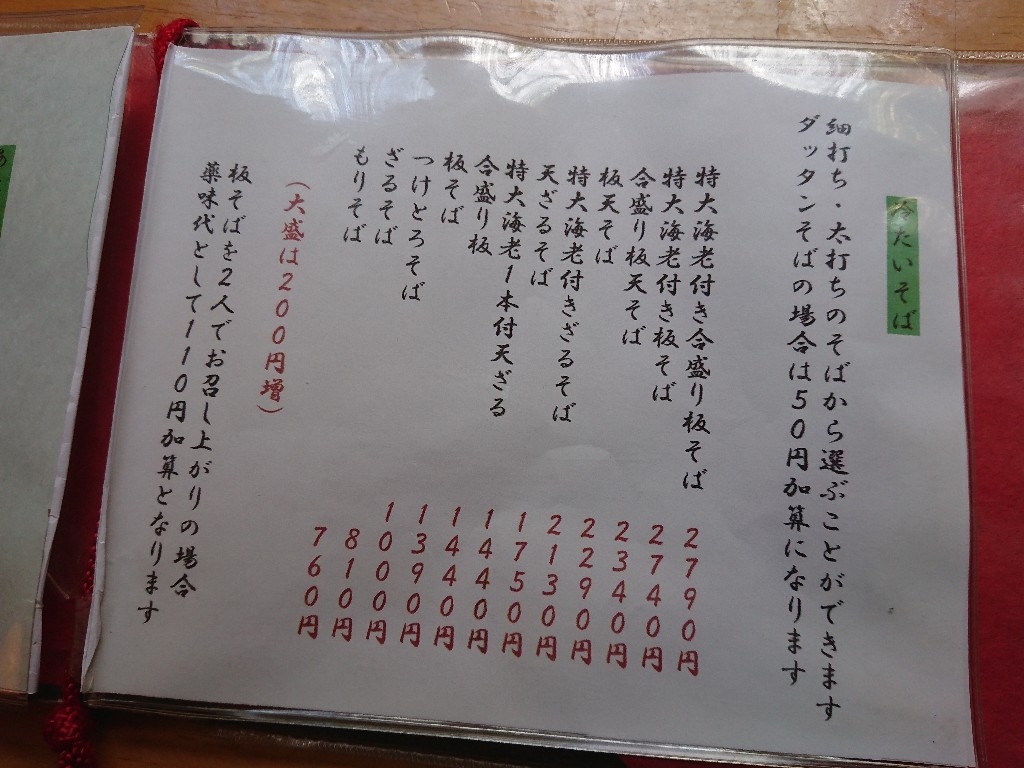 冷たいそば
細打ち・太打ちのそばから選ぶことができます
ダッタンそばの場合は50円加算になります
特大海老付き合盛り板そば 2790円
特大海老付き板そば 2740円
合盛り板天そば 2340円
板天そば 2290円
特大海老付きざるそば 2130円
天ざるそば 1750円
特大海老1本付天ざる 1440円
合盛り板 1440円
板そば 1390円
つけとろそば 1000円
ざるそば 810円
もりそば 760円
(大盛は200円増)
板そばを2人でお召し上がりの場合
薬味代として110円加算となります